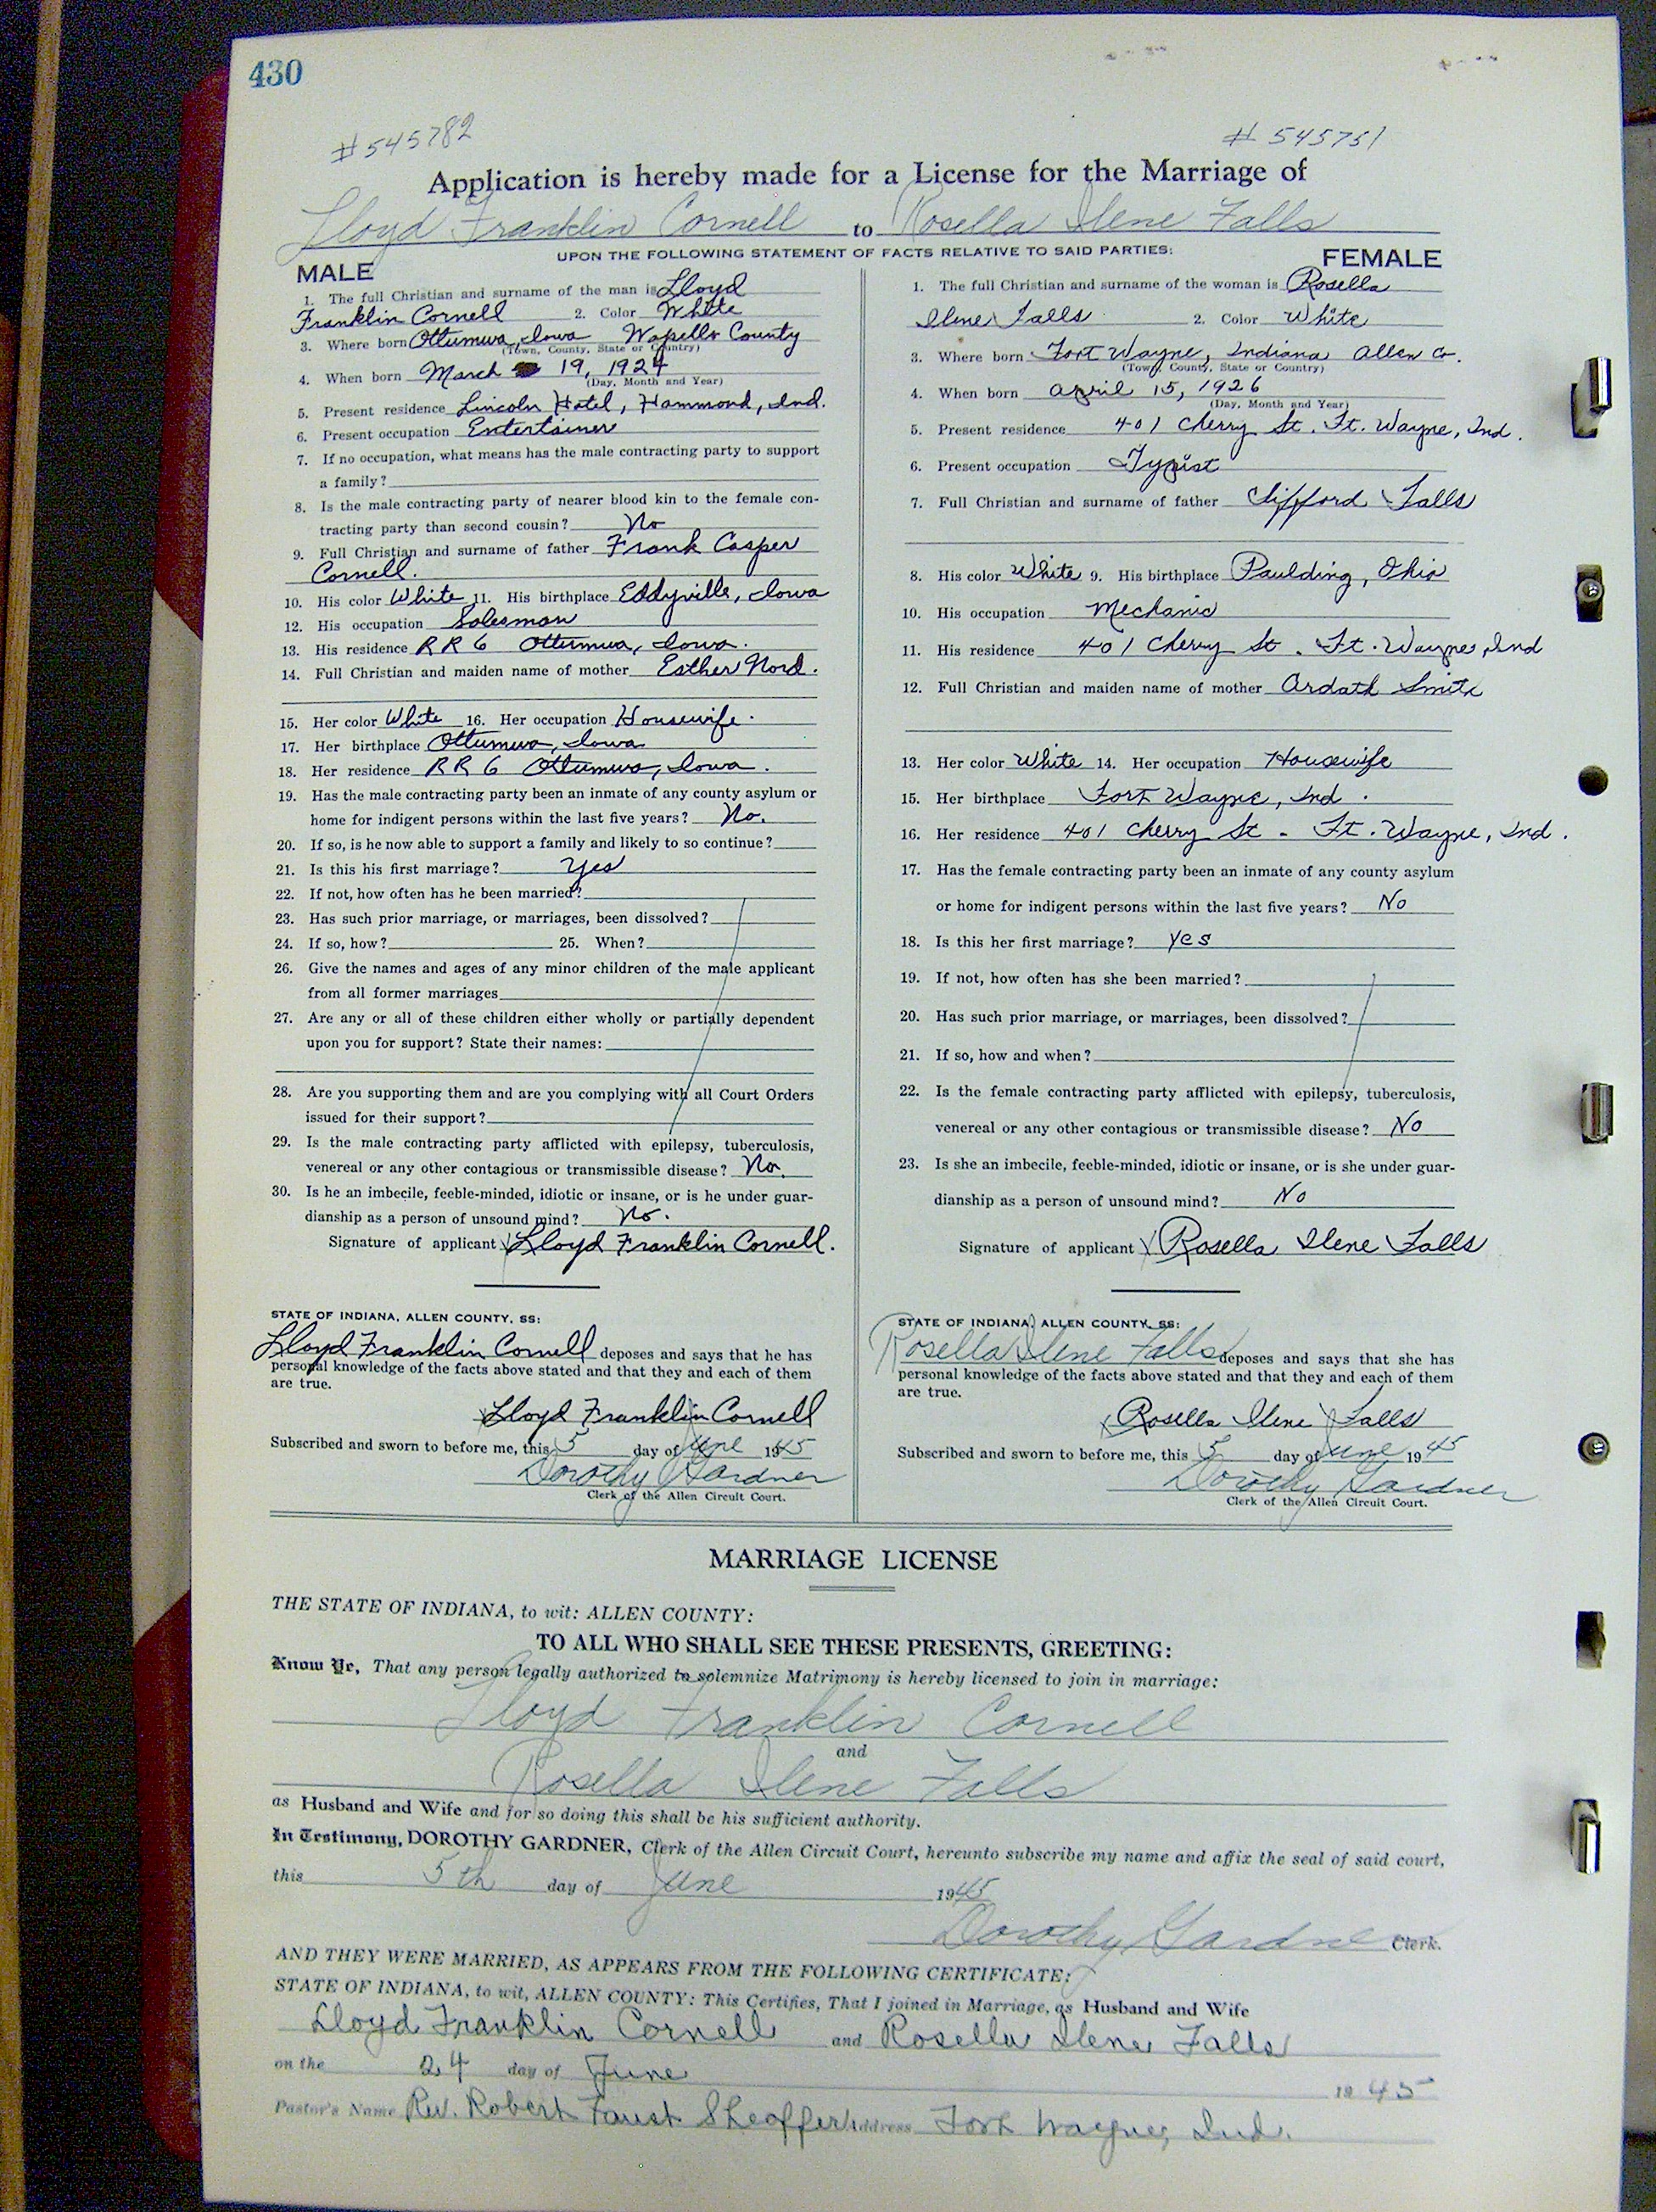 430
#545782
# 545751
Application is hereby made for a License for the Marriage of
Lloyd Franklin Cornell to Rosella Ilene Falls
UPON THE FOLLOWING STATEMENT OF FACTS RELATIVE TO SAID PARTIES:
MALE
1. The full Christian and surname of the man is Lloyd
Franklin Cornell 2. Color White
3. Where born Ottumwa, Iowa Wapello County
(Town, County, State or Country)
4. When born March 19, 1924
(Day, Month and Year)
5. Present residence Lincoln Hotel, Hammond, Ind.
6. Present occupation Entertainer
7. If no occupation, what means has the male contracting party to support
a family?
8. Is the male contracting party of nearer blood kin to the female con-
tracting party than second cousin? No
9. Full Christian and surname of father Frank Casper
Cornell.
10. His color White 11. His birthplace Eddyville, Iowa
12. His occupation Salesman
13. His residence R R 6 Ottumwa, Iowa.
14. Full Christian and maiden name of mother Esther Nord.
15. Her color White 16. Her occupation Housewife.
17. Her birthplace Ottumwa, Iowa
18. Her residence R R 6 Ottumwa, Iowa.
19. Has the male contracting party been an inmate of any county asylum or
home for indigent persons within the last five years? No.
20. If so, is he now able to support a family and likely to so continue?
21. Is this his first marriage? Yes
22. If not, how often has he been married?
23. Has such prior marriage, or marriages, been dissolved?
24. If so, how? 25. When?
26. Give the names and ages of any minor children of the male applicant
from all former marriages
27. Are any or all of these children either wholly or partially dependent
upon you for support? State their names:
28. Are you supporting them and are you complying with all Court Orders
issued for their support?
29. Is the male contracting party afflicted with epilepsy, tuberculosis,
venereal or any other contagious or transmissible disease? No.
30. Is he an imbecile, feeble-minded, idiotic or insane, or is he under guar-
dianship as a person of unsound mind? No.
Signature of applicant Lloyd Franklin Cornell.
STATE OF INDIANA, ALLEN COUNTY, SS:
Lloyd Franklin Cornell deposes and says that he has
personal knowledge of the facts above stated and that they and each of them
are true.
Lloyd Franklin Cornell
Subscribed and sworn to before me, this 5 day of June 1945
Dorothy Gardner
Clerk of the Allen Circuit Court.
FEMALE
1. The full Christian and surname of the woman is Rosella
Ilene Falls 2. Color White
3. Where born Fort Wayne, Indiana Allen Co.
(Town, County, State or Country)
4. When born April 15, 1926
(Day, Month and Year)
5. Present residence 401 Cherry St. Ft. Wayne, Ind.
6. Present occupation Typist
7. Full Christian and surname of father Clifford Falls
8. His color White 9. His birthplace Paulding, Ohio
10. His occupation Mechanic
11. His residence 401 Cherry St. Ft. Wayne, Ind
12. Full Christian and maiden name of mother Ardath Smith
13. Her color White 14. Her occupation Housewife
15. Her birthplace Fort Wayne, Ind.
16. Her residence 401 Cherry St - Ft. Wayne, Ind.
17. Has the female contracting party been an inmate of any county asylum
or home for indigent persons within the last five years? No
18. Is this her first marriage? Yes
19. If not, how often has she been married?
20. Has such prior marriage, or marriages, been dissolved?
21. If so, how and when?
22. Is the female contracting party afflicted with epilepsy, tuberculosis,
venereal or any other contagious or transmissible disease? No
23. Is she an imbecile, feeble-minded, idiotic or insane, or is she under guar-
dianship as a person of unsound mind? No
Signature of applicant Rosella Ilene Falls
STATE OF INDIANA, ALLEN COUNTY, SS:
Rosella Ilene Falls deposes and says that she has
personal knowledge of the facts above stated and that they and each of them
are true.
Rosella Ilene Falls
Subscribed and sworn to before me, this 5 day of June 1945
Dorothy Gardner
Clerk of the Allen Circuit Court.
MARRIAGE LICENSE
THE STATE OF INDIANA, to wit: ALLEN COUNTY:
TO ALL WHO SHALL SEE THESE PRESENTS, GREETING:
Know Ye, That any person legally authorized to solemnize Matrimony is hereby licensed to join in marriage:
Lloyd Franklin Cornell
and
Rosella Ilene Falls
as Husband and Wife and for so doing this shall be his sufficient authority.
In Testimony, DOROTHY GARDNER, Clerk of the Allen Circuit Court, hereunto subscribe my name and affix the seal of said court,
this 5th day of June 1945
Dorothy Gardner Clerk.
AND THEY WERE MARRIED, AS APPEARS FROM THE FOLLOWING CERTIFICATE:
STATE OF INDIANA, to wit, ALLEN COUNTY: This Certifies, That I joined in Marriage, as Husband and Wife
Lloyd Franklin Cornell and Rosella Ilene Falls
on the 24 day of June 1945
Pastor's Name Rev. Robert Faust Sheaffer Address Fort Wayne, Ind.